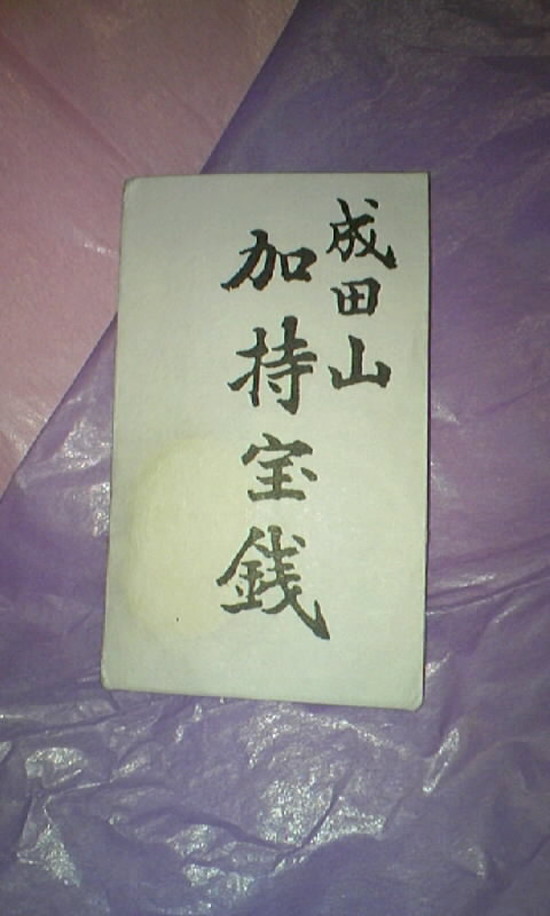 成田山
加持宝銭